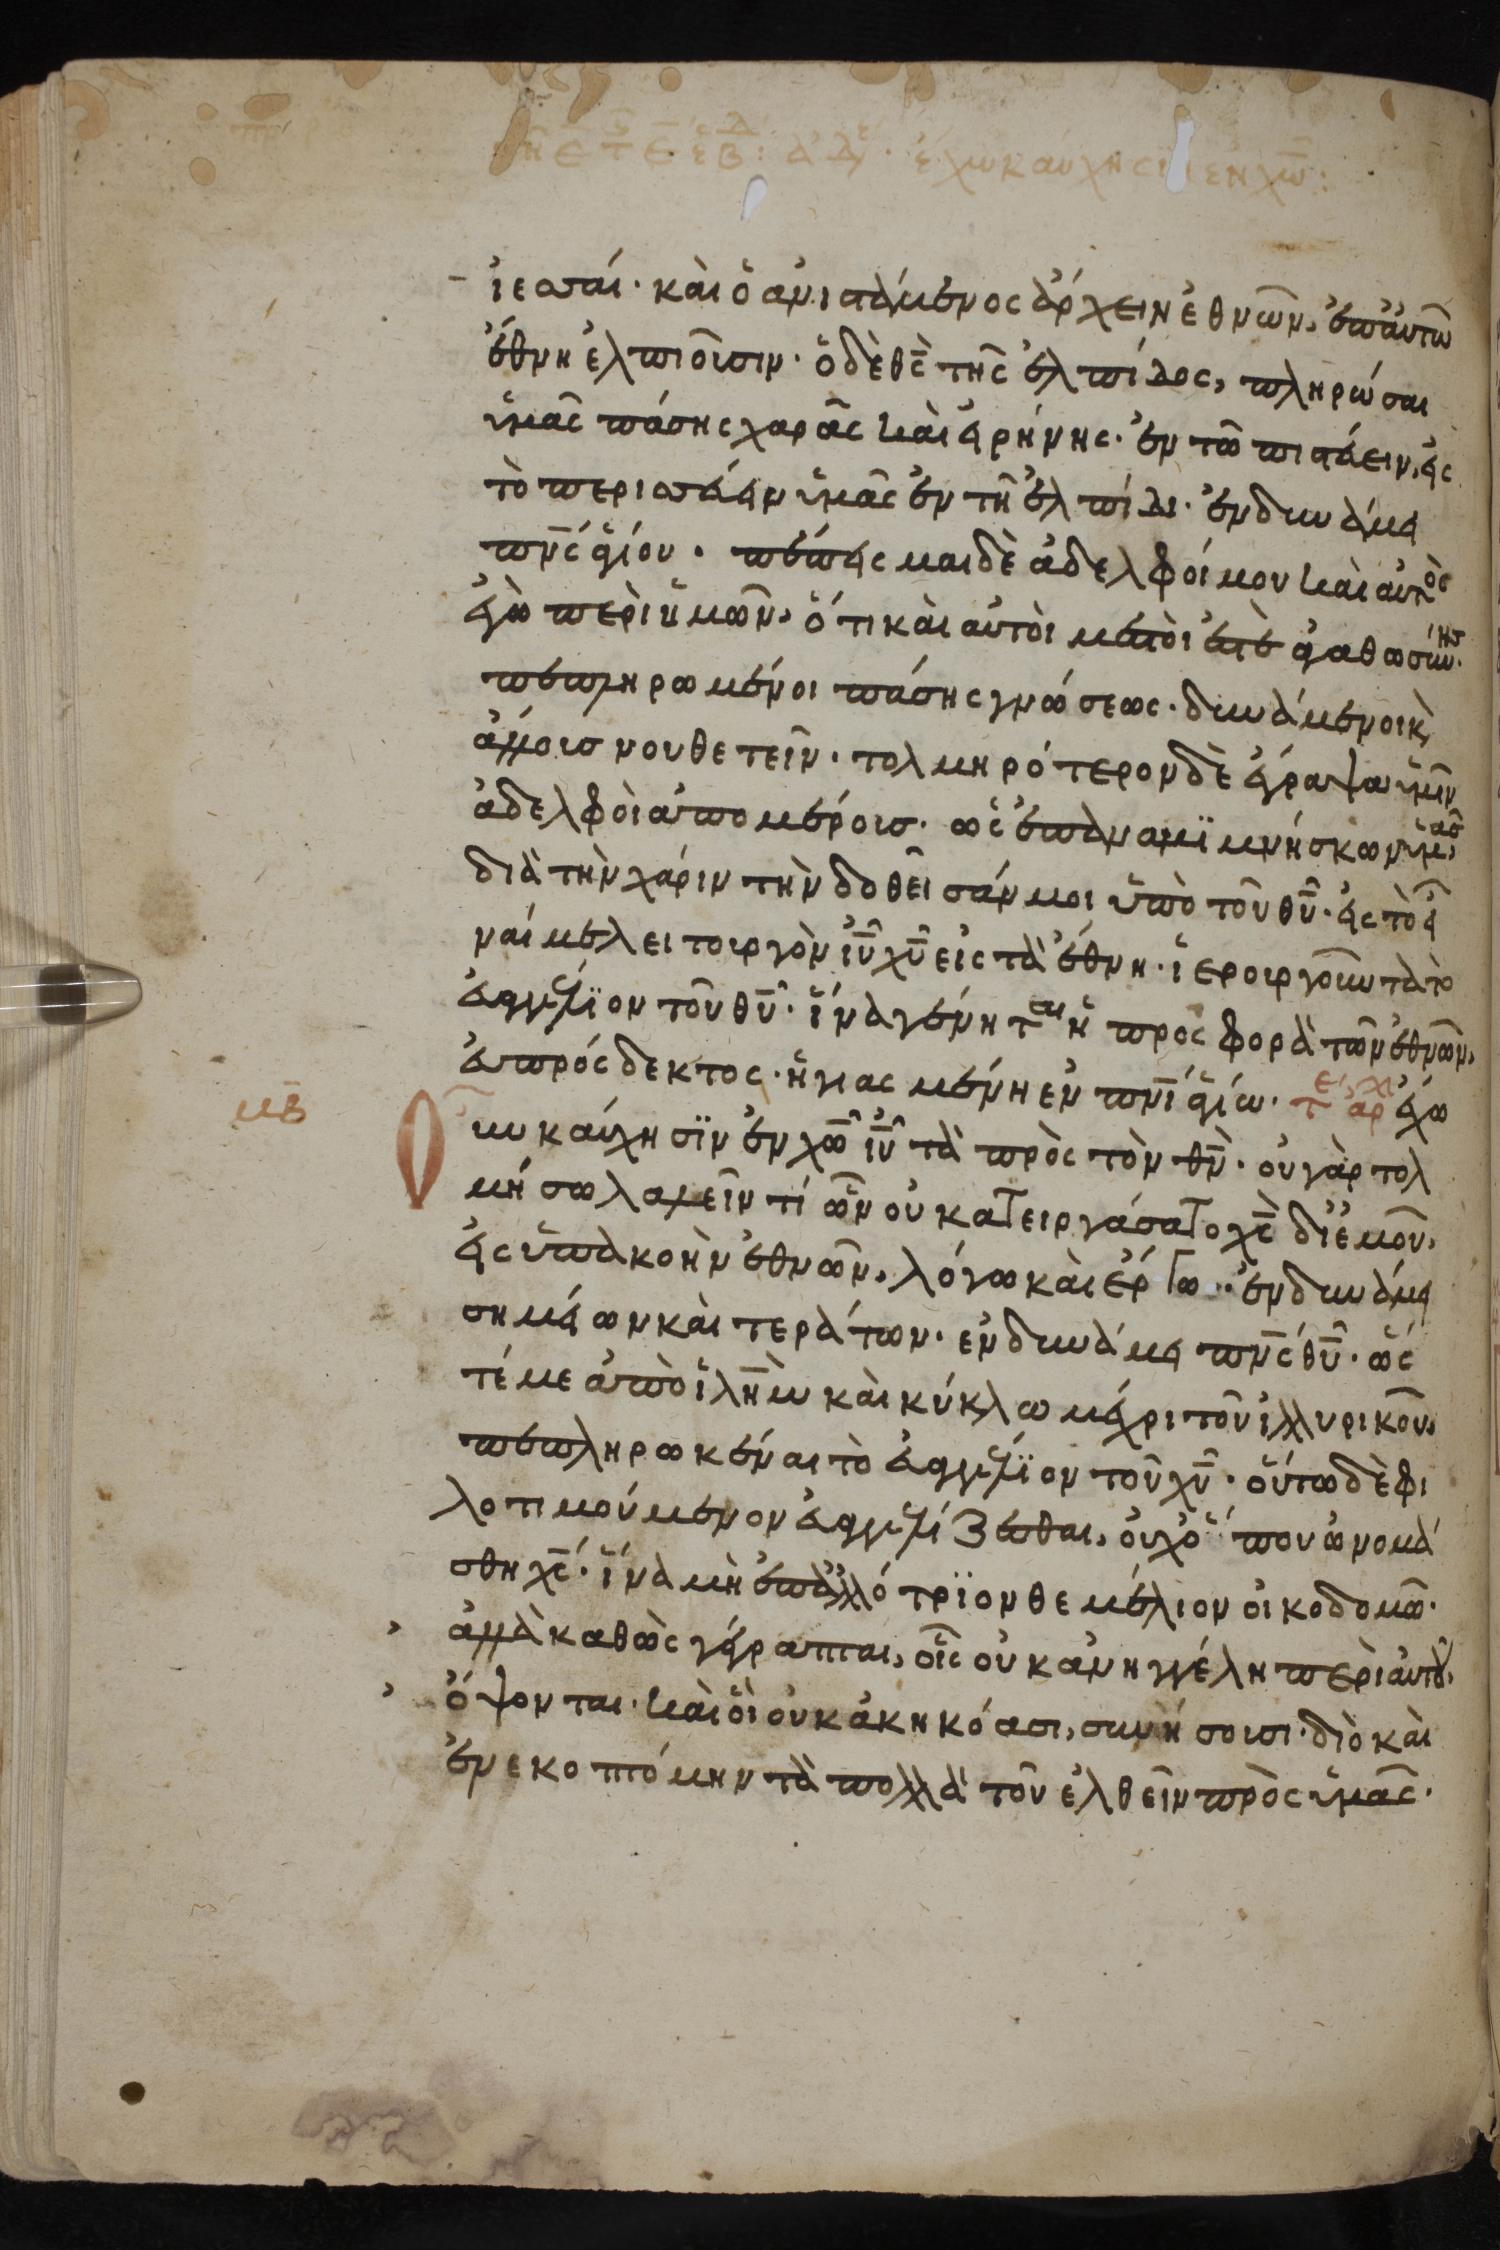 τῆ ε̄ τ ε̄ ἑβ: ἀδ. ἔχω καύχησιν ἐν χω̄:
ἰεσσαί· καὶ ὁ ἀνιστάμενος ἄρχειν ἐθνῶν, ἐπ αὐτῶ
ἔθνη ἐλπιοῦσιν· ὁ δὲ θς̄ τῆς ἐλπίδος, πληρώσαι
ὑμᾶς πάσης χαρᾶς καὶ εἰρήνης· ἐν τῶ πιστεύειν, εἰς
τὸ περισσεύειν ὑμᾶς ἐν τῆ ἐλπίδι· ἐν δυνάμει
πνς̄ ἁγίου· πέπεισμαι δὲ ἀδελφοί μου καὶ αὐτὸς
ἐγὼ περὶ ὑμῶν, ὅτι καὶ αὐτοὶ μεστοί ἐστε ἀγαθωσύνης·
πεπληρωμένοι πάσης γνώσεως· δυνάμενοι κ̀
ἄλλοις νουθετεῖν· τολμηρότερον δὲ ἔγραψα ὑμῖν
ἀδελφοὶ ἀπο μέροις· ὡς ἐπαναμϊμνήσκων ὑμᾶς,
διὰ τὴν χάριν τὴν δοθεῖσάν μοι ὑπὸ τοῦ θῡ· εἰς τὸ εἶ
ναί με λειτουργὸν ῑῡ χῡ εἰς τὰ ἔθνη· ἱερουργοῦντα τὸ
εὐαγγέλϊον τοῦ θῡ· ἵνα γένηται ἡ προσφορὰ τῶν ἐθνῶν,
εὐπρόσδεκτος· ἡγιασμένη ἐν πνῑ ἁγίω· τε͂ ἀρχ ἔχω
μβ̄
οὖν καύχησϊν ἐν χω̄ ῑῡ τὰ πρὸς τὸν θν̄· οὐ γὰρ τολ
μήσω λαλεῖν τί ὧν οὐ κατειργάσατο χς̄ δϊ ἐμοῦ,
εἰς ὑπακοὴν ἐθνῶν, λόγω καὶ ἔργω· ἐν δυνάμει
σημείων καὶ τεράτων· ἐν δυνάμει πνς̄ θῡ· ὥσ
τέ με ἀπὸ ἱλη̄μ καὶ κύκλω μέχρι τοῦ ἰλλυρικοῦ,
πεπληρωκέναι τὸ εὐαγγέλϊον τοῦ χῡ· οὕτω δὲ φι
λοτιμούμενον εὐαγγελίζεσθαι, οὐχ ὅπου ὠνομά
σθη χς̄· ἵνα μὴ ἐπ ἀλλότρϊον θεμέλιον οἰκοδομῶ·
ἀλλὰ καθὼς γέγραπται, οἷς οὐκ ἀνηγγέλη περὶ αὐτοῦ,
ὄψονται· καὶ οἳ οὐκ ἀκηκόασι, συνήσουσι· διὸ καὶ
ἐνεκοπτόμην τὰ πολλὰ τοῦ ἐλθεῖν πρὸς ὑμᾶς·